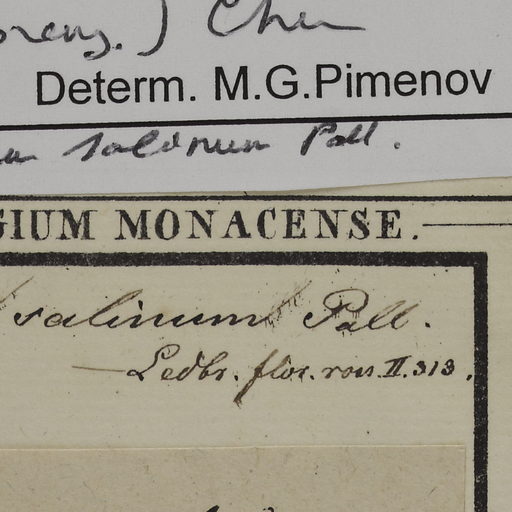 ) Chen
Determ. M.G.Pimenov
salinum Pall.
GIUM MONACENSE.
salinum Pall.
— Ledbr. flor. ross. II. 313.